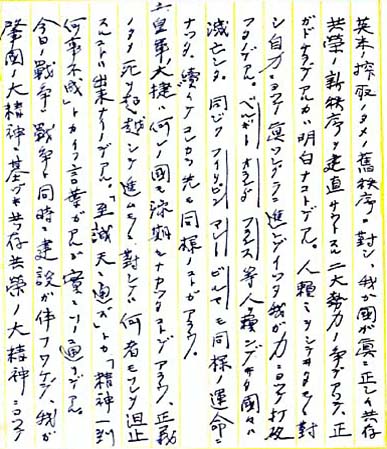 英米ノ搾取ノタメノ舊秩序ニ對シ、我ガ國ガ眞ニ正シイ共存
共榮ノ新秩序ヲ建直サウトスル二大勢力ノ爭デアツテ、正
ガドチラデアルカハ明白ナコトデアル。人類ヲ シテキタモノニ對
シ自力ニヨツテ眞ツシグラニ進ンデイツタ我ガ力ニヨツテ打破
ツタノデアル。ベルギー オランダ フランス等人ヲ頼ンデヰタ國々ハ
滅亡シタ。同ジク フィリピン マレー ビルマモ同様ノ運命ニ
ナツタ。續イテコレカラ先モ同様ノコトガアラウ。
皇軍ノ大捷ハ何レノ國モ豫期シナカツタデアラウ。正義
ノタメ死ヲ超越シテ進ムモノニ對シテハ何者モコレヲ阻止
スルコトハ出來ナイノデアル。「至誠天ニ通ズ」トカ「精神一到
何事不成」トカイフ言葉ガアルガ實ニソノ通リデアル。
今日ノ戰爭ハ戰爭ト同時ニ建設ガ伴フワケデ、我ガ
肇國ノ大精神ニ基ヅキ共存共榮ノ大精神ニヨツテ